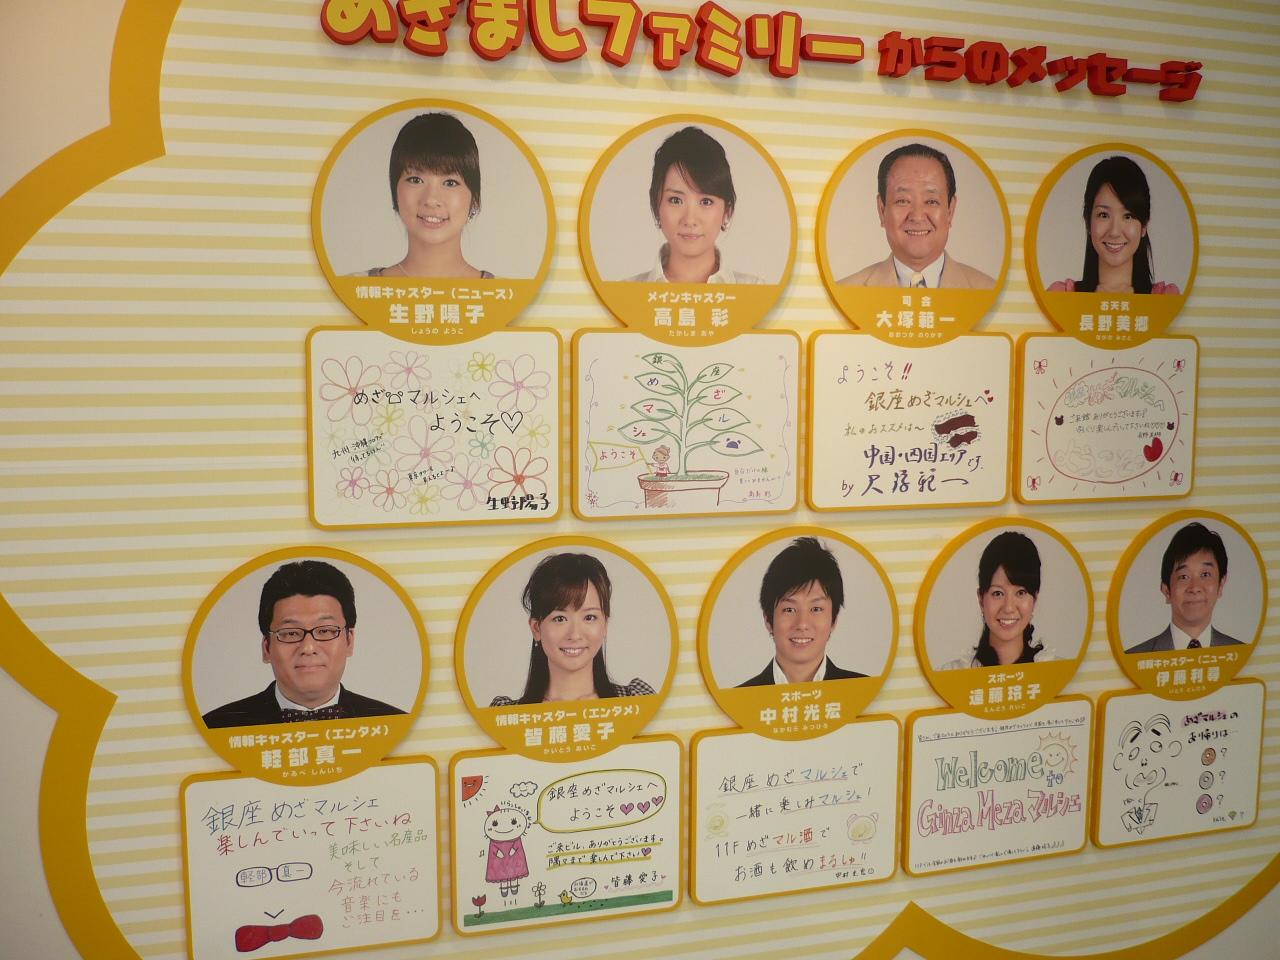 めざましファミリーからのメッセージ
情報キャスター（ニュース）
生野陽子
しょうの ようこ
メインキャスター
高島 彩
たかしま あや
司会
大塚範一
おおつか のりかず
お天気
長野美郷
ながの みさと
めざマルシェへ
ようこそ♡
生野陽子
銀座
めざ
マル
シェ
ようこそ
高島 彩
ようこそ!!
銀座めざマルシェへ
私のおススメは〜
中国・四国エリアです.
by 大塚範一
ご来館ありがとうございます♪
長野美郷
情報キャスター（エンタメ）
軽部真一
かるべ しんいち
情報キャスター（エンタメ）
皆藤愛子
かいとう あいこ
スポーツ
中村光宏
なかむら みつひろ
スポーツ
遠藤玲子
えんどう れいこ
情報キャスター（ニュース）
伊藤利尋
いとう としひろ
銀座 めざマルシェ
楽しんでいって下さいね
美味しい名産品
そして
今流れている
音楽にも
ご注目を・・・
軽部 真一
銀座めざマルシェへ
ようこそ♡♡♡
ご来ビル、ありがとうございます。
隅々まで楽しんで下さい♡
皆藤愛子
銀座 めざ マルシェで
一緒に楽しみマルシェ!
11F めざ マル酒で
お酒も飲めまるしゅ!!
中村光宏
Welcome
to
Ginza Meza マルシェ
めざマルシェの
お帰りは…
?
?
?